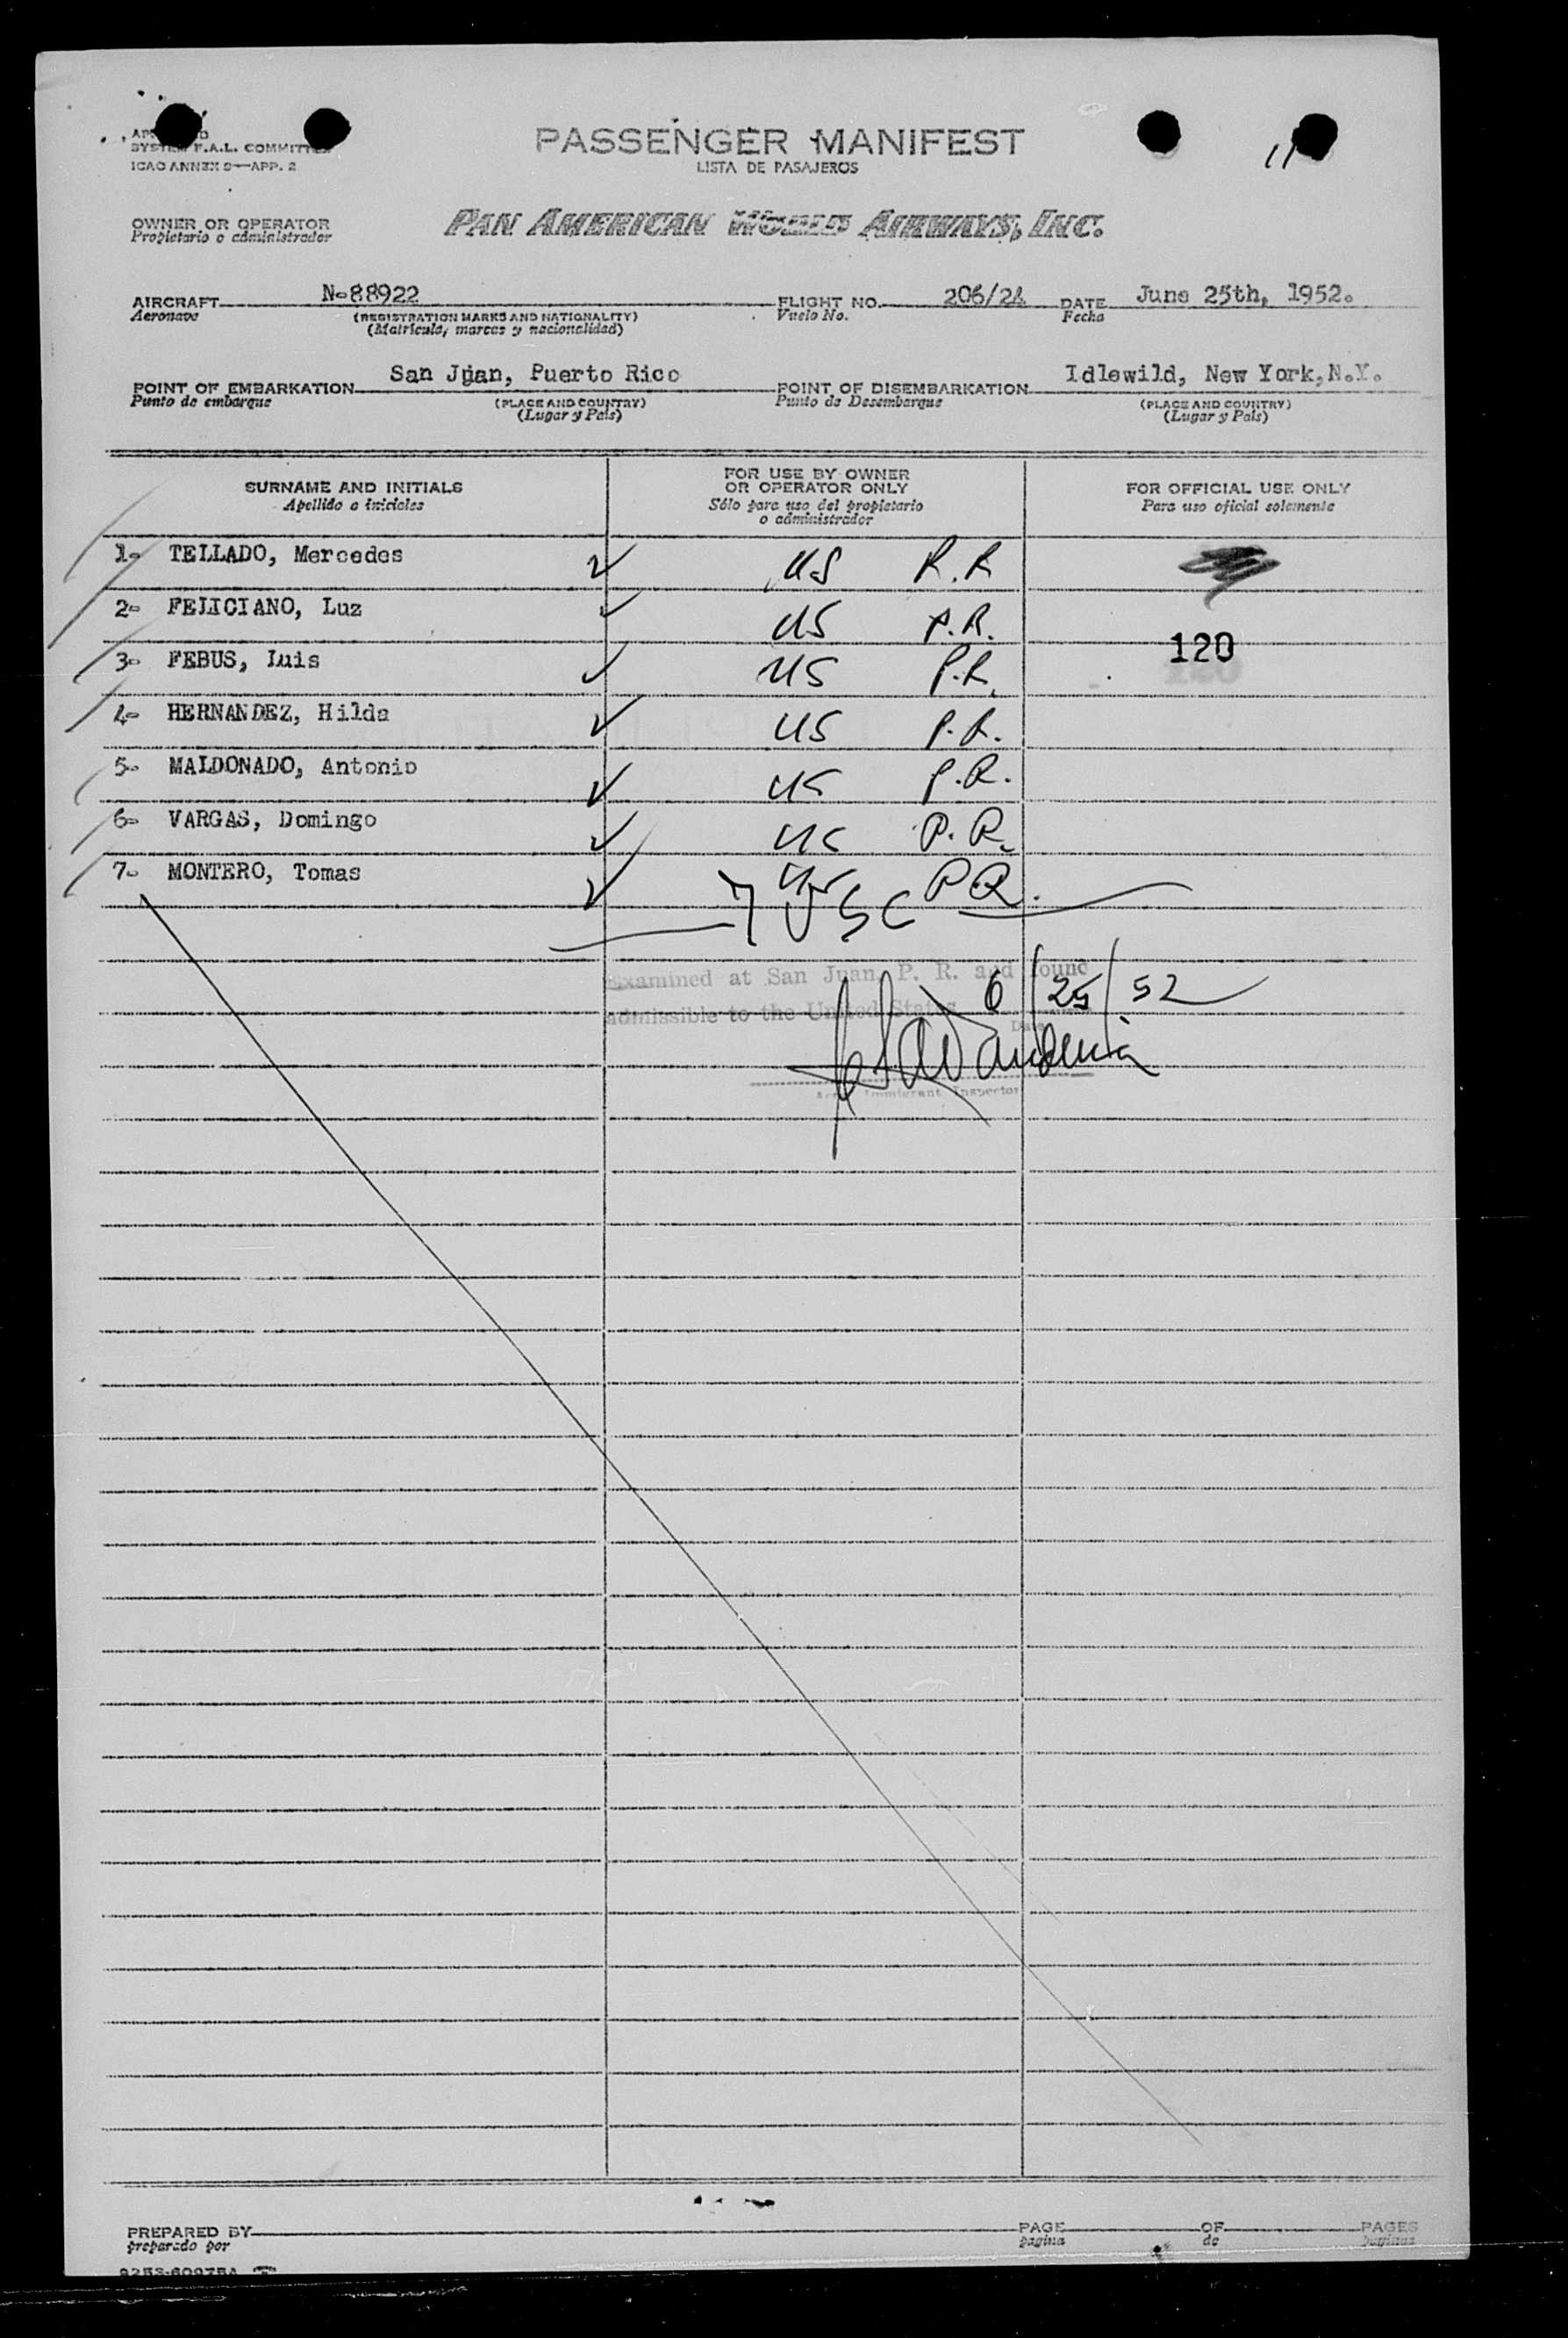 PASSENGER MANIFEST
LISTA DE PASAJEROS
SYSTEM F.A.L. COMMITTEE
ICAO ANNEX 9—APP. 2
OWNER OR OPERATOR
Propietario o administrador
PAN AMERICAN WORLD AIRWAYS, INC.
AIRCRAFT N-88922 FLIGHT NO. 206/24 DATE June 25th, 1952.
Aeronave (REGISTRATION MARKS AND NATIONALITY) Vuelo No. Fecha
(Matrícula, marcas y nacionalidad)
POINT OF EMBARKATION San Juan, Puerto Rico POINT OF DISEMBARKATION Idlewild, New York, N.Y.
Punto de embarque (PLACE AND COUNTRY) Punto de Desembarque (PLACE AND COUNTRY)
(Lugar y País) (Lugar y País)
SURNAME AND INITIALS FOR USE BY OWNER OR OPERATOR ONLY FOR OFFICIAL USE ONLY
Apellido o iniciales Sólo para uso del propietario o administrador Para uso oficial solamente
1- TELLADO, Mercedes US P.R
2- FELICIANO, Luz US P.R.
120
3- FEBUS, Luis US P.R.
4- HERNANDEZ, Hilda US P.R.
5- MALDONADO, Antonio US P.R.
6- VARGAS, Domingo US P.R.
7- MONTERO, Tomas US P.R.
7 USC
Examined at San Juan, P. R. and found
admissible to the United States 6/25/52
Date
Immigrant Inspector
PREPARED BY PAGE OF PAGES
preparado por pagina de paginas